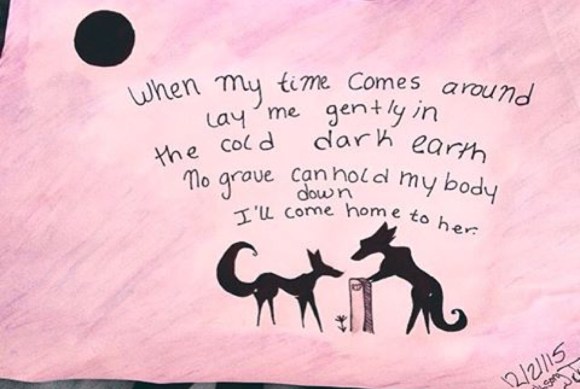 When my time comes around
Lay me gently in
the cold dark earth
No grave can hold my body
down
I'll come home to her.
12/2/15